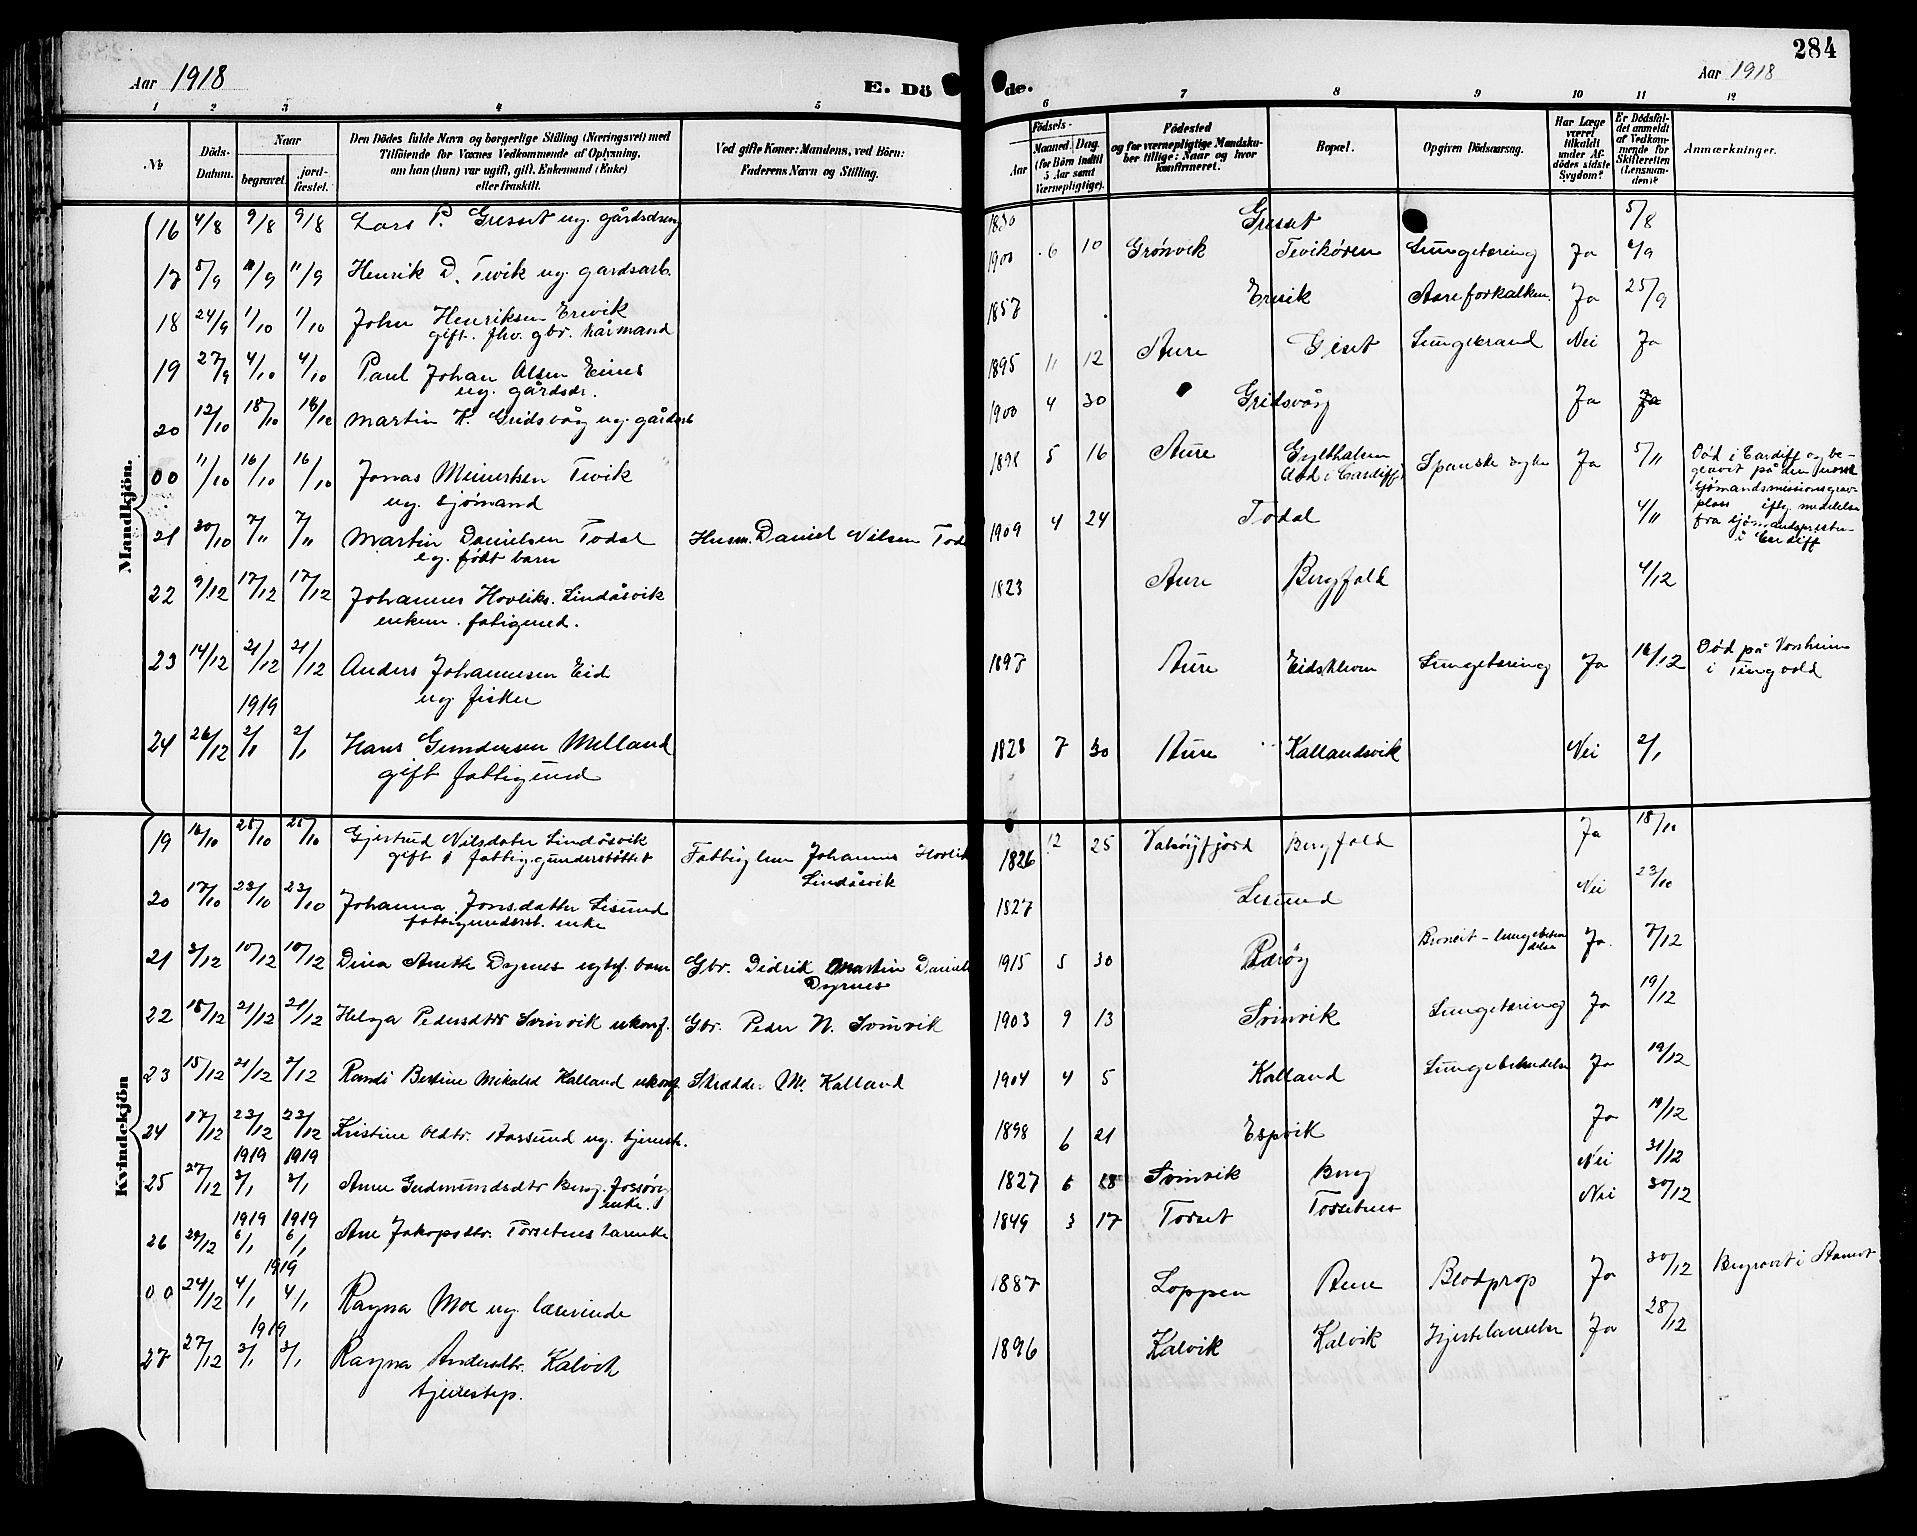 284
Aar 1918
E. Dö
de.
Aar 1918
1 2 3 4 5 6 7 8 9 10 11 12
No
Döds-Datum.
Naar
begravet.
jordfæstet.
Den Dödes fulde Navn og borgerlige Stilling (Næringsvei) med
Tilföiende for Voxnes Vedkommende af Oplysning,
om han (hun) var ugift, gift, Enkemand (Enke)
eller fraskilt.
Ved gifte Koner: Mandens, ved Börn:
Faderens Navn og Stilling.
Födsels-
Aar
Maaned. Dag.
(for Börn indtil
5 Aar samt
Værnepligtige).
Födested
og for værnepligtige Mandskaber tillige: Naar og hvor
konfirmeret.
Bopæl.
Opgiven Dödsaarsag.
Har Læge
været
tilkaldt
under Afdödes sidste
Sygdom?
Er Dödsfaldet anmeldt
af Vedkommende for
Skifteretten
(Lensmanden)?
Anmærkninger.
Mandkjön.
16 4/8 9/8 9/8 Lars P. Gresset ug. gårdsdreng 1850 Gresset 5/8
17 5/9 11/9 11/9 Henrik D. Tevik ug. gardsarb. 1900 6 10 Grønvik Tevikøren Lungetæring Ja 6/9
18 24/9 1/10 1/10 John Henriksen Erevik
gift. fhv. gbr. kårmand 1857 Erevik Aareforkalkn. Ja 25/9
19 27/9 4/10 4/10 Paul Johan Olsen Eines
ug. gårdsdr. 1895 11 12 Aure Giset Lungebrand Nei Ja
20 12/10 18/10 18/10 Martin K. Gridsvåg ug. gårdsarb 1900 4 30 Gridsvåg Ja Ja
00 11/10 16/10 16/10 Jonas Meinertsen Tevik
ug. sjømand 1898 5 16 Aure Gylthalsen
død i Cardiff Spanske syke Ja 5/11 Død i Cardiff og begravet på den norske
sjømandsmissionsgravplass iflg. meddelelse
fra sjømandspresten
i Cardiff
21 30/10 7/11 7/11 Martin Danielsen Todal
eg. født barn Husm. Daniel Nilsen Tod 1909 4 24 Todal 4/11
22 9/12 17/12 17/12 Johannes Hovliks. Lindåsvik
enkem. fatigund. 1823 Aure Bergfald 4/12
23 14/12 21/12 21/12 Anders Johannesen Eid
ug fisker 1897 Aure Eidskleven Lungetæring Ja 16/12 Død på Vorsheim
i Tingvold
1919
24 26/12 2/1 2/1 Hans Gundersen Melland
gift fattigund 1828 7 30 Aure Kallandsvik Nei 2/1
Kvindekjön
19 16/10 25/10 25/10 Gjertrud Nilsdatter Lindåsvik
gift fattiggunderstøttet Fattiglem Johannes Hovlik
Lindåsvik 1826 12 25 Valsøyfjord Bergfald Ja 18/10
20 17/10 23/10 23/10 Johanna Jonsdatter Lesund
fattigunderst. enke 1827 Lesund Nei 23/10
21 3/12 10/12 10/12 Dina Anette Dyrnes egtef. barn Gbr. Didrik Martin Daniels
Dyrnes 1915 5 30 Rørøy Bronkit-lungebetændelse Ja. 7/12
22 18/12 21/12 21/12 Helga Pedersdtr Svinvik ukonf. Gbr. Peder N. Svinvik 1903 9 13 Svinvik Lungetæring Ja 19/12
23 15/12 21/12 21/12 Randi Bertine Mikalsd Kalland ukonf. Skrædder M. Kalland 1904 4 5 Kalland Lungebetændelse Ja 19/12
24 17/12 23/12 23/12 Kristine Oldtr. Aarsund ug. tjenest. 1898 6 21 Espvik Ja 19/12
1919 1919
25 27/12 3/1 3/1 Anne Gudmundsdtr Berg. Fossøry
enke. 1827 6 18 Svinvik Berg Nei 31/12
1919 1919
26 29/12 6/1 6/1 Ane Jakopsdtr. Torsetnes kårenke 1849 3 17 Torset Torsetnes Nei 30/12
1919
00 24/12 4/1 4/1 Ragna Moe ug. lærerinde 1887 Loppen Aure Blodprop Ja 30/12 Begravet i Stamnes
1919
27 27/12 3/1 3/1 Ragna Andersdtr. Kalvik
tjenestep. 1896 Kalvik Kalvik Hjertelammelse Ja 28/12